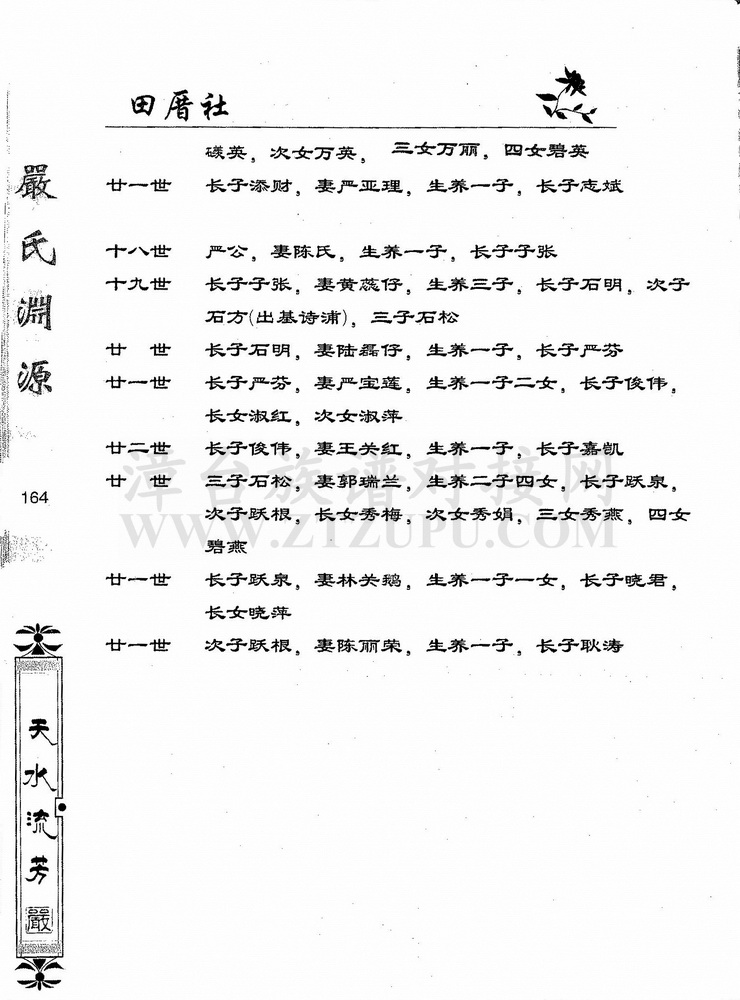 田厝社
礒英，次女万英，三女万丽，四女碧英
廿一世 长子添财，妻严亚理，生养一子，长子志斌
十八世 严公，妻陈氏，生养一子，长子子张
十九世 长子子张，妻黄蕊仔，生养三子，长子石明，次子
石方(出基诗浦)，三子石松
廿 世 长子石明，妻陆磊仔，生养一子，长子严芬
廿一世 长子严芬，妻严宝莲，生养一子二女，长子俊伟，
长女淑红，次女淑萍
廿二世 长子俊伟，妻王关红，生养一子，长子嘉凯
廿 世 三子石松，妻郭瑞兰，生养二子四女，长子跃泉，
次子跃根，长女秀梅，次女秀娟，三女秀燕，四女
碧燕
廿一世 长子跃泉，妻林关鹅，生养一子一女，长子晓君，
长女晓萍
廿一世 次子跃根，妻陈丽荣，生养一子，长子耿涛
嚴氏淵源
164
天水流芳
嚴
漳台族谱对接网
WWW.ZTZUPU.COM